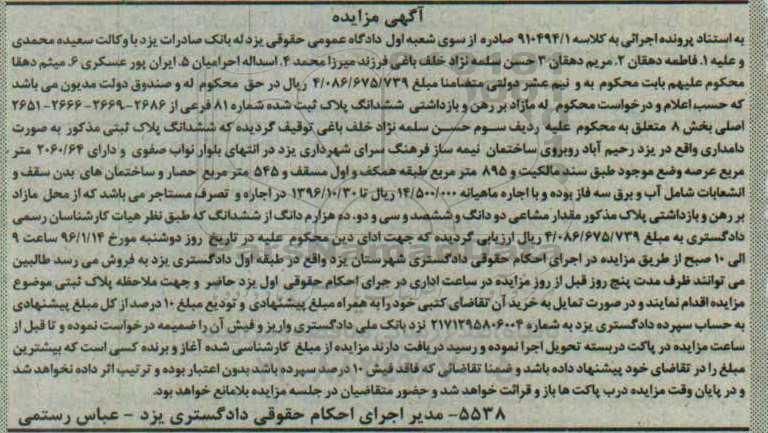 آگهی مزایده
به استناد پرونده اجرائی به کلاسه ۹۱۰۴۹۴/۱ صادره از سوی شعبه اول دادگاه عمومی حقوقی یزد له بانک صادرات یزد با وکالت سعیده محمدی
و علیه ۱. فاطمه دهقان ۲. مریم دهقان ۳ حسن سلمه نژاد خلف باغی فرزند میرزا محمد ۴. اسداله احرامیان ۵. ایران پور عسکری ۶. میثم دهقا
محکوم علیهم بابت محکوم به و نیم عشر دولتی متضامنا مبلغ ۴/۰۸۶/۶۷۵/۷۳۹ ریال در حق محکوم له و صندوق دولت مدیون می باشد
که حسب اعلام و درخواست محکوم له مازاد بر رهن و بازداشتی ششدانگ پلاک ثبت شده شماره ۸۱ فرعی از ۲۶۸۶-۲۶۶۹-۲۶۶۶-۲۶۵۱
اصلی بخش ۸ متعلق به محکوم علیه ردیف سوم حسن سلمه نژاد خلف باغی توقیف گردیده که ششدانگ پلاک ثبتی مذکور به صورت
دامداری واقع در یزد رحیم آباد روبروی ساختمان نیمه ساز فرهنگ سرای شهرداری یزد در انتهای بلوار نواب صفوی و دارای ۲۰۶۰/۶۴ متر
مربع عرصه وضع موجود طبق سند مالکیت و ۸۹۵ متر مربع طبقه همکف و اول مسقف و ۵۴۵ متر مربع حصار و ساختمان های بدن سقف و
انشعابات شامل آب و برق سه فاز بوده و با اجاره ماهیانه ۱۴/۵۰۰/۰۰۰ ریال تا ۱۳۹۶/۱۰/۳۰ در اجاره و تصرف مستاجر می باشد که از محل مازاد
بر رهن و بازداشتی پلاک مذکور مقدار مشاعی دو دانگ و ششصد و سی و دو، ده هزارم دانگ از ششدانگ که طبق نظر هیات کارشناسان رسمی
دادگستری به مبلغ ۴/۰۸۶/۶۷۵/۷۳۹ ریال ارزیابی گردیده که جهت ادای دین محکوم علیه در تاریخ روز دوشنبه مورخ ۹۶/۱/۱۴ ساعت ۹
الی ۱۰ صبح از طریق مزایده در اجرای احکام حقوقی دادگستری شهرستان یزد واقع در طبقه اول دادگستری یزد به فروش می رسد طالبین
می توانند ظرف مدت پنج روز قبل از روز مزایده در ساعت اداری در جرای احکام حقوقی اول یزد حاضر و جهت ملاحظه پلاک ثبتی موضوع
مزایده اقدام نمایند و در صورت تمایل به خرید آن تقاضای کتبی خود را به همراه مبلغ پیشنهادی و تودیع مبلغ ۱۰ درصد از کل مبلغ پیشنهادی
به حساب سپرده دادگستری یزد به شماره ۲۱۷۱۲۹۵۸۰۶۰۰۴ نزد بانک ملی دادگستری واریز و فیش آن را ضمیمه درخواست نموده و تا قبل از
ساعت مزایده در پاکت دربسته تحویل اجرا نموده و رسید دریافت دارند مزایده از مبلغ کارشناسی شده آغاز و برنده کسی است که بیشترین
مبلغ را در تقاضای خود پیشنهاد داده باشد و ضمنا تقاضائی که فاقد فیش ۱۰ درصد سپرده باشد بدون اعتبار بوده و ترتیب اثر داده نخواهد شد
و در پایان وقت مزایده درب پاکت ها باز و قرائت خواهد شد و حضور متقاضیان در جلسه مزایده بلامانع خواهد بود.
۵۵۳۸- مدیر اجرای احکام حقوقی دادگستری یزد - عباس رستمی